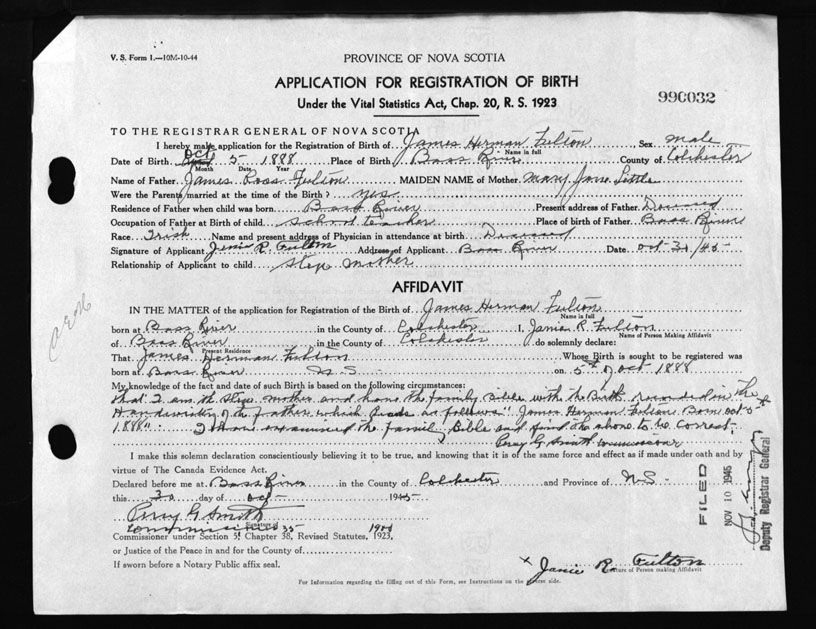 V. S. Form 1.—10M-10-44
PROVINCE OF NOVA SCOTIA
APPLICATION FOR REGISTRATION OF BIRTH
Under the Vital Statistics Act, Chap. 20, R. S. 1923
990032
TO THE REGISTRAR GENERAL OF NOVA SCOTIA
I hereby make application for the Registration of Birth of James Herman Fulton Sex male
Name in full
Date of Birth Oct 5 - 1888 Place of Birth Bass River County of Colchester
Month Date Year
Name of Father James Ross Fulton MAIDEN NAME of Mother Mary Jane Little
Were the Parents married at the time of the Birth? yes
Residence of Father when child was born Bass River Present address of Father Deceased
Occupation of Father at Birth of child school teacher Place of birth of Father Bass River
Race Irish Name and present address of Physician in attendance at birth Deceased
Signature of Applicant Janie R. Fulton Address of Applicant Bass River Date Oct 30/45-
Relationship of Applicant to child Step mother
AFFIDAVIT
IN THE MATTER of the application for Registration of the Birth of James Herman Fulton
Name in full
born at Bass River in the County of Colchester I, Janie R. Fulton
Name of Person Making Affidavit
of Bass River in the County of Colchester do solemnly declare:
Present Residence
That James Herman Fulton Whose Birth is sought to be registered was
born at Bass River N S on 5th of Oct 1888
My knowledge of the fact and date of such Birth is based on the following circumstances:
that I am the Step mother and have the family Bible with the Birth recorded in the
Handwriting of the father which reads as follows "James Herman Fulton Born Oct 5th
1888". I have examined the family Bible and find the above to be correct,
Percy G Smith commissioner
I make this solemn declaration conscientiously believing it to be true, and knowing that it is of the same force and effect as if made under oath and by
virtue of The Canada Evidence Act.
Declared before me at Bass River in the County of Colchester and Province of N.S.-
this 30 day of Oct- 1945
Percy G Smith
Signature of
Commissioner under Section 5, Chapter 38, Revised Statutes, 1923,
or Justice of the Peace in and for the County of
If sworn before a Notary Public affix seal.
x Janie R. Fulton
Signature of Person making Affidavit
For Information regarding the filling out of this Form, see Instructions on the reverse side.
FILED
NOV 10 1945
Deputy Registrar General